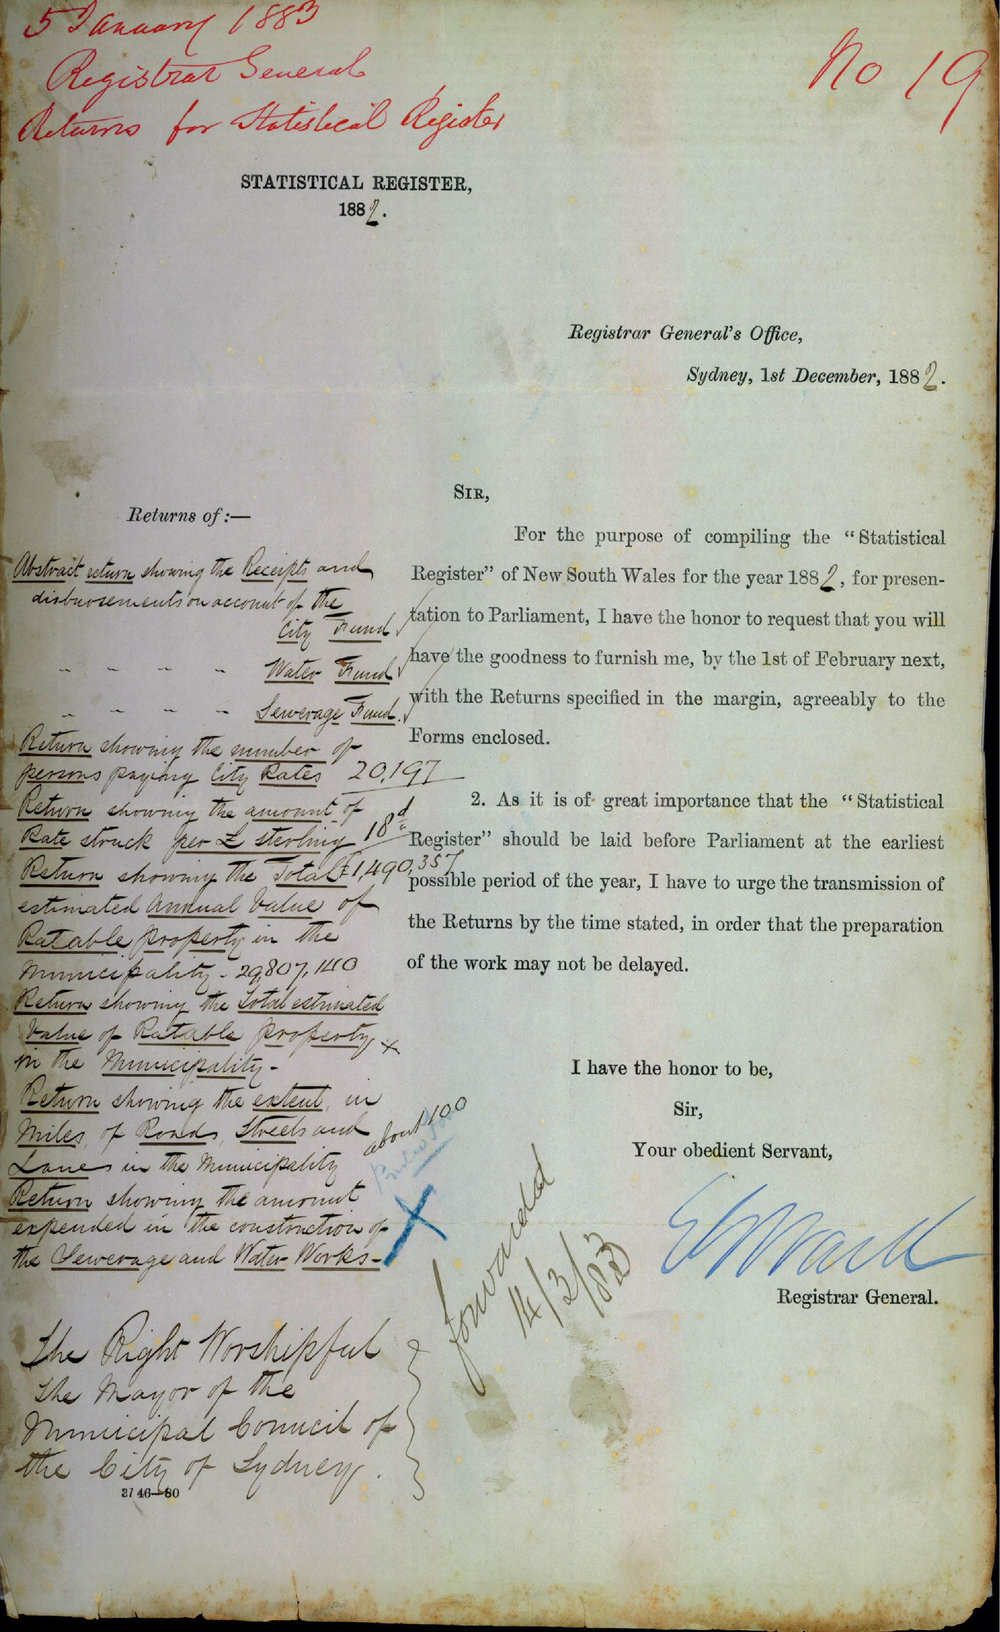 5 January 1883
Registrar General
Returns for Statistical Register
No 19
STATISTICAL REGISTER,
1882.
Registrar General's Office,
Sydney, 1st December, 1882.
Returns of:—
Abstract return showing the Receipts and
disbursements on account of the
City Fund
" " " " Water Fund
" " " " Sewerage Fund.
Return showing the number of
persons paying City Rates 20,197
Return showing the amount of
Rate struck per £ sterling 18d
Return showing the Total £1,490,357
estimated Annual Value of
Ratable property in the
Municipality - 29,807,140
Return showing the Total estimated
Value of Ratable property x
in the Municipality -
Return showing the extent, in
Miles, of Roads, Streets and
Lanes in the Municipality about 100
Return showing the amount
expended in the construction of
the Sewerage and Water Works -
SIR,
For the purpose of compiling the "Statistical
Register" of New South Wales for the year 1882, for presen-
tation to Parliament, I have the honor to request that you will
have the goodness to furnish me, by the 1st of February next,
with the Returns specified in the margin, agreeably to the
Forms enclosed.
2. As it is of great importance that the "Statistical
Register" should be laid before Parliament at the earliest
possible period of the year, I have to urge the transmission of
the Returns by the time stated, in order that the preparation
of the work may not be delayed.
I have the honor to be,
Sir,
Your obedient Servant,
Ward
Registrar General.
forwarded
14/3/83
The Right Worshipful
the Mayor of the
Municipal Council of
the City of Sydney.
3746—80